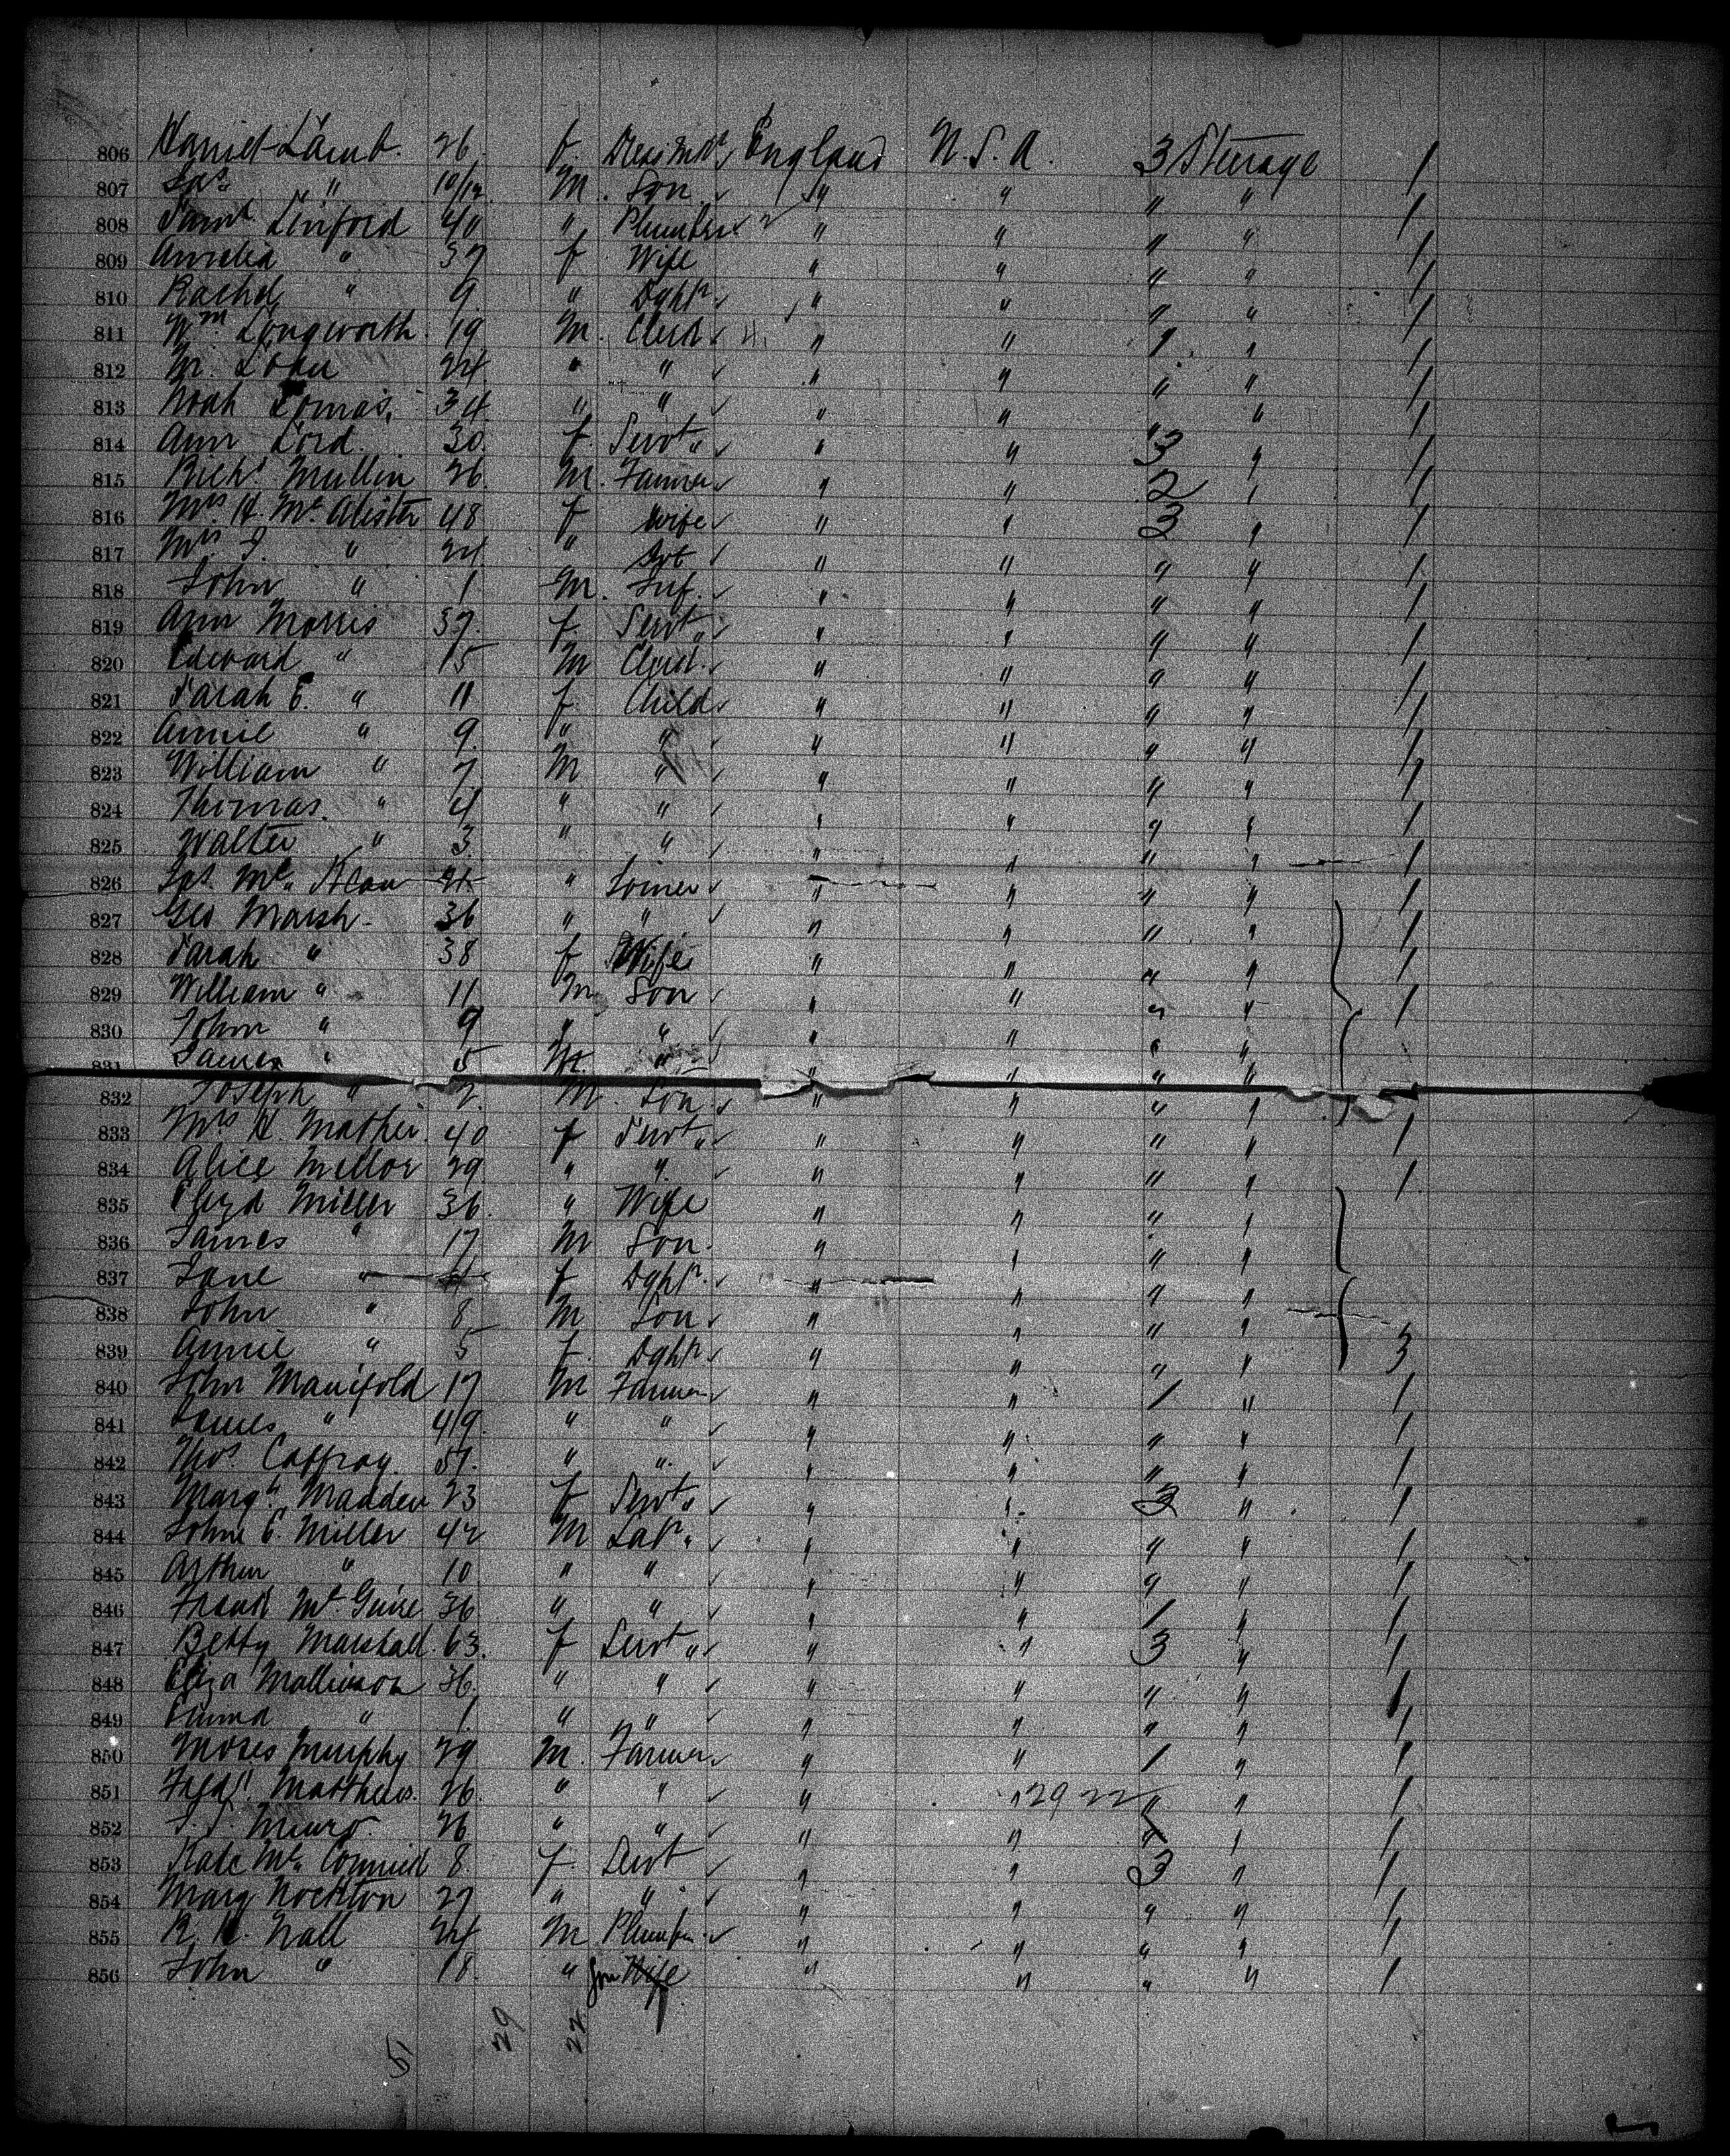 806 Harriet Lamb. 26. f. Dressmkr England U.S.A. 3 Steerage 1
807 Jas " 10/12 M. Son " " " " 1
808 Saml Linford 40 " Plumber " " " " 1
809 Amelia " 37 f. Wife " " " " 1
810 Rachel " 9 " Dghtr " " " " 1
811 Wm Longworth 19 M. Clerk " " 1 " 1
812 M. 24 " " " " " " 1
813 Noah Lomas. 34 " " " " " " 1
814 Ann Lord. 30. f. Servt " " 3 " 1
815 Richd Mullin 26 M. Farmer " " 2 " 1
816 Mrs H. Mc Alister 48 f wife " " 3 " 1
817 Mrs J. " 24 " " " " " 1
818 John " 1 M. Inf. " " " " 1
819 Ann Morris 37. f. Servt " " " " 1
820 Edward " 15 M Clerk " " " " 1
821 Sarah E. " 11 f. Child " " " " 1
822 Annie " 9 " " " " " " 1
823 William " 7 M " " " " " 1
824 Thomas. " 4 " " " " " " 1
825 Walter " 3 " " " " " " 1
826 Jas. Mc " Joiner " " " " 1
827 Geo Marsh 36 " " " " " " 1
828 Sarah " 38 f Wife " " " " 1
829 William " 11 M Son " " " " 1
830 John " 9 " " " " " "
831 James " 5 M " " " " "
832 Joseph " 2 M. Son " " " "
833 Mrs H. Mather 40 f Servt " " " " 1
834 Alice Mellor 29 " " " " " " 1
835 Eliza Miller 36 " Wife " " " "
836 James " 17 M Son " " " "
837 Jane " f Dghtr " " " "
838 John " 8 M Son " " " "
839 Annie " 5 f. Dghtr " " " " 3
840 John Manifold 17 M Farmer " " 1 " 1
841 James " 49 " " " " " " 1
842 Thos Caffray 57. " " " " " " 1
843 Margt Madden 23 f Servt " " 3 " 1
844 John E. Miller 42 M Labr " " " " 1
845 Arthur " 10 " " " " " " 1
846 Frank Mc Guire 36 " " " " 1 " 1
847 Betty Marshall 63. f Servt " " 3 " 1
848 Eliza Mallinson 36. " " " " " " 1
849 Emma " 1 " " " " " " 1
850 Moses Murphy 29 M. Farmer " " 1 " 1
851 Fredk Matthews. 26. " " " " 29 22 " " 1
852 J. J. Munro. 26 " " " " " 1
853 Kate Mc Cormick 8 f. Servt " " 3 " 1
854 Mary Nockton 27 " " " " " " 1
855 R. H. Nall 24 M Plumber " " " " 1
856 John " 18. " Son Wife " " " " 1
51 29 22